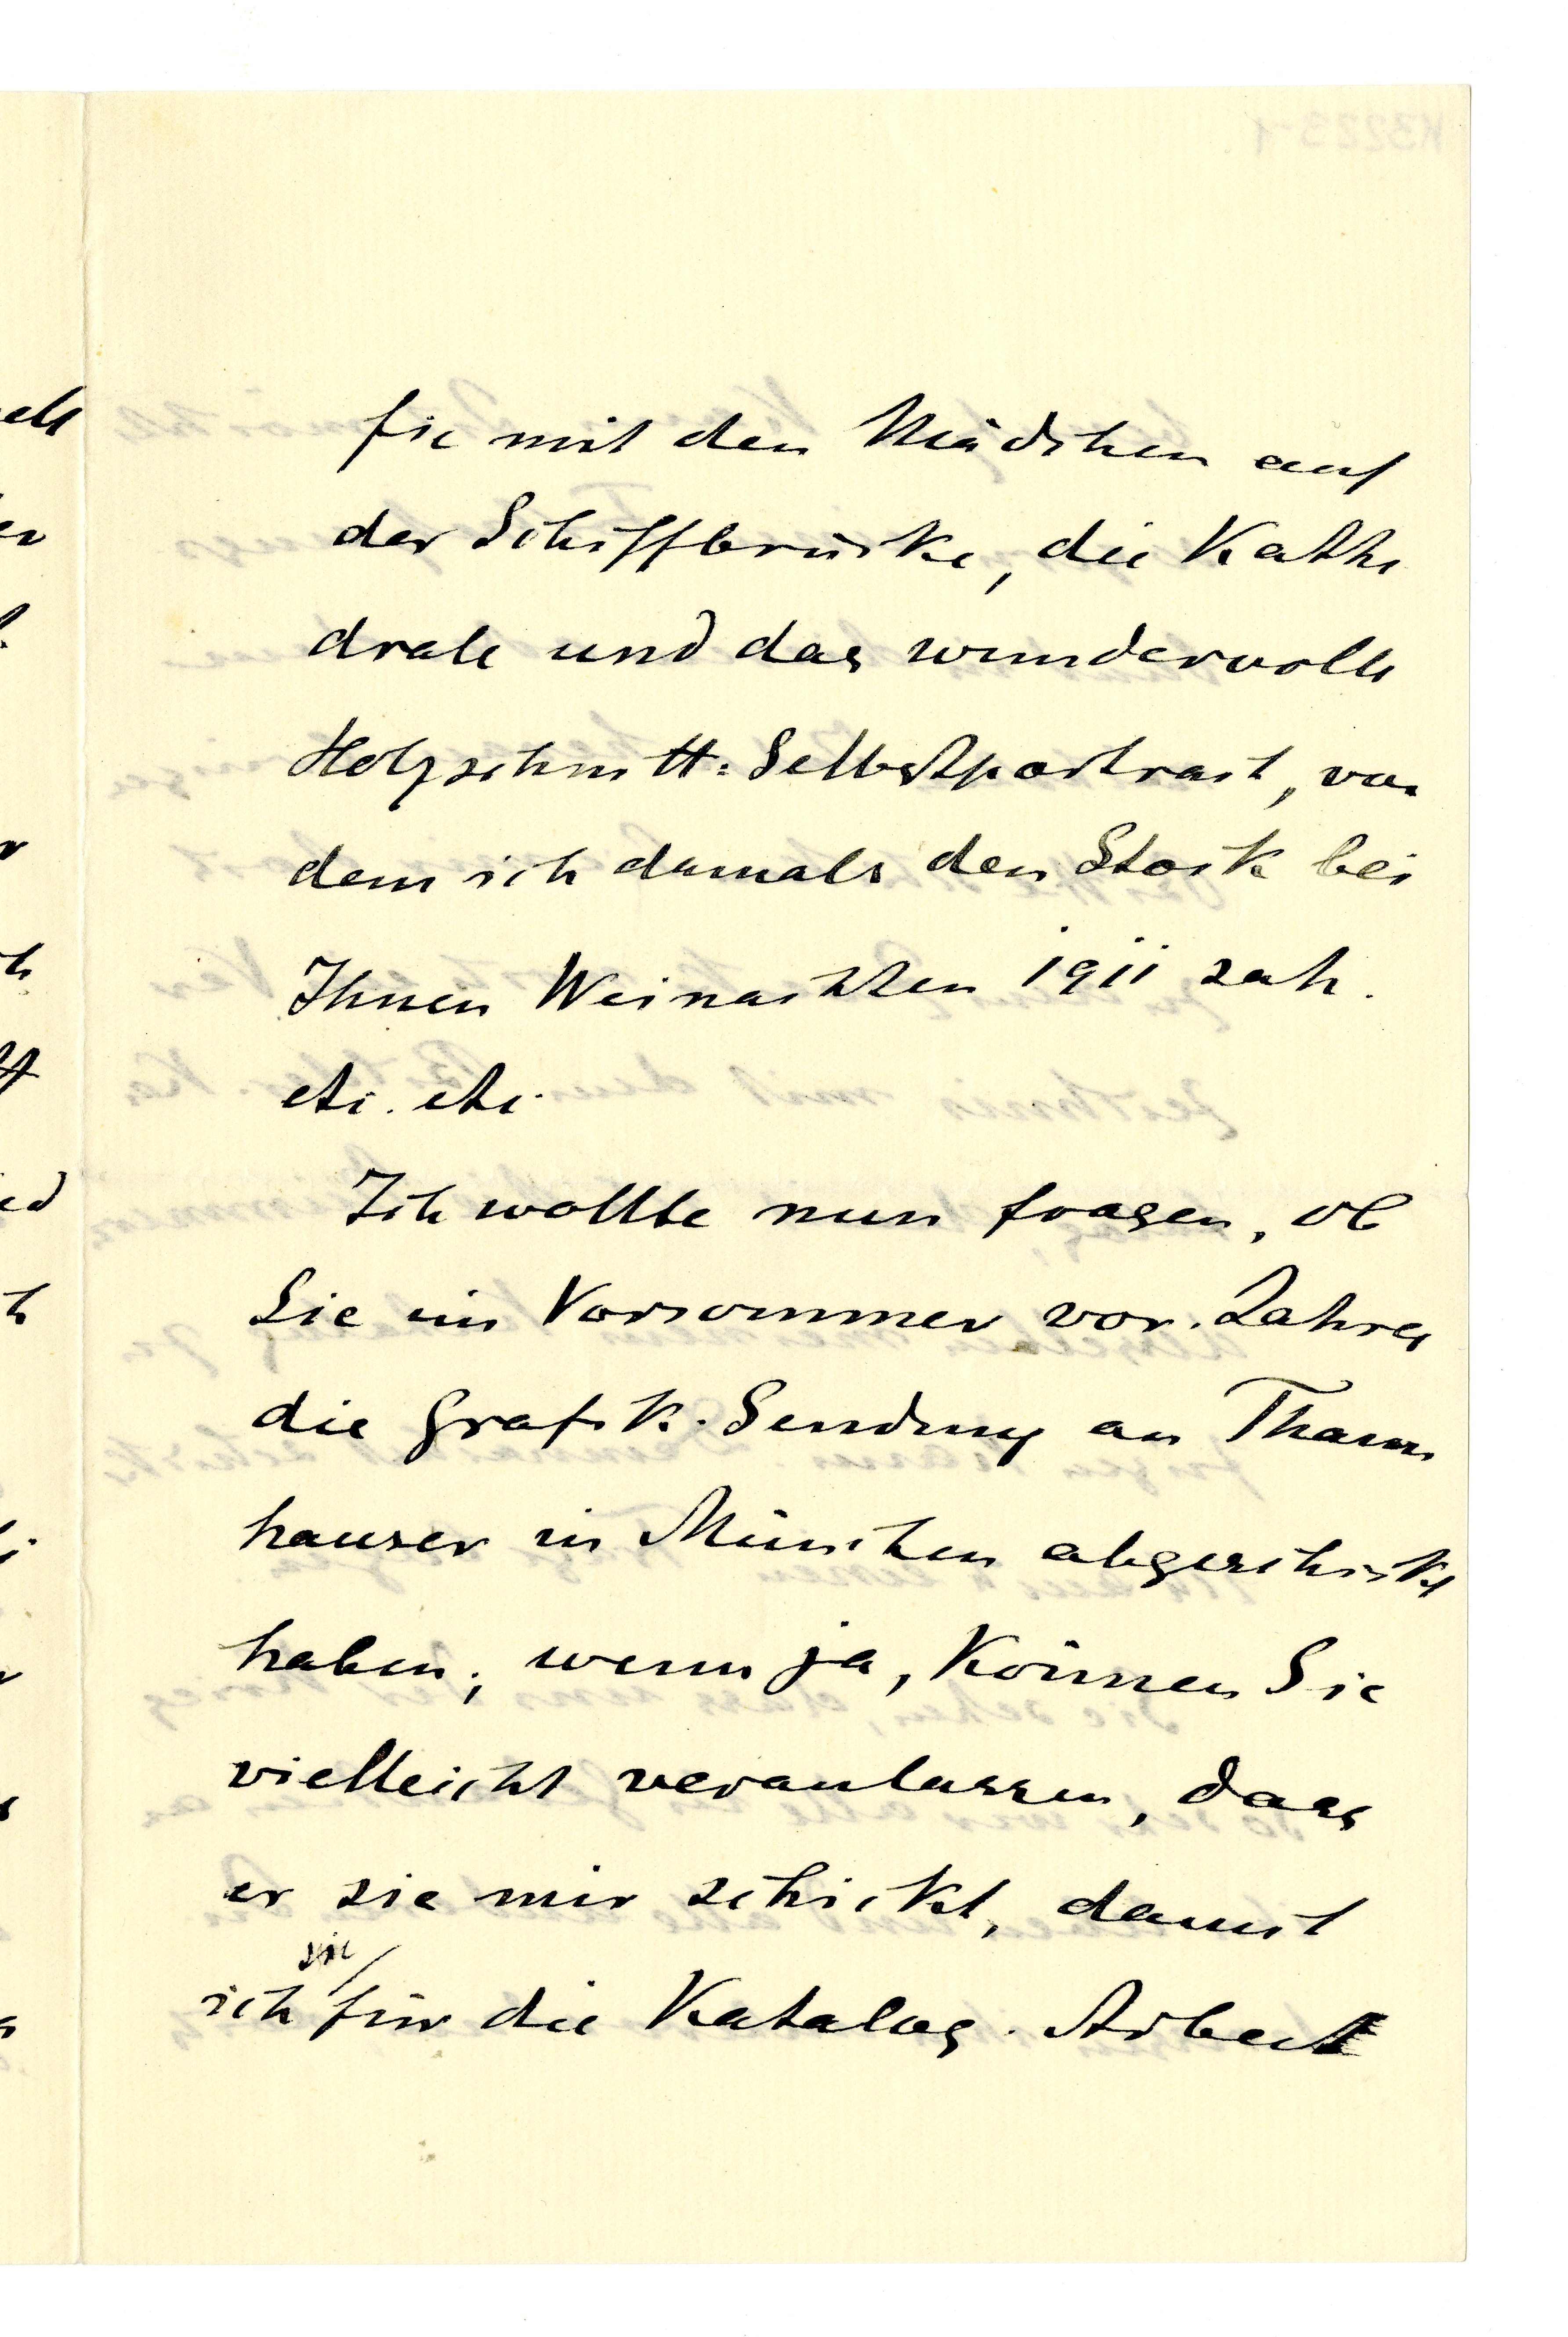 fie mit den Mädchen auf
der Schiffbrücke, die Kathe
drale und das wundervolle
Holzschnitt=Selbstportrait, von
dem ich damals den Stock bei
Ihnen Weinachten 1911 sah.
etc. etc.
Ich wollte nun fragen, ob
Sie im Vorsommer vor. Jahres
die Grafik-Sendung an Thann
hauser in München abgeschickt
haben; wenn ja, können Sie
vielleicht veranlassen, dass
er sie mir schickt, damit
ich sie für die Katalog-Arbeit